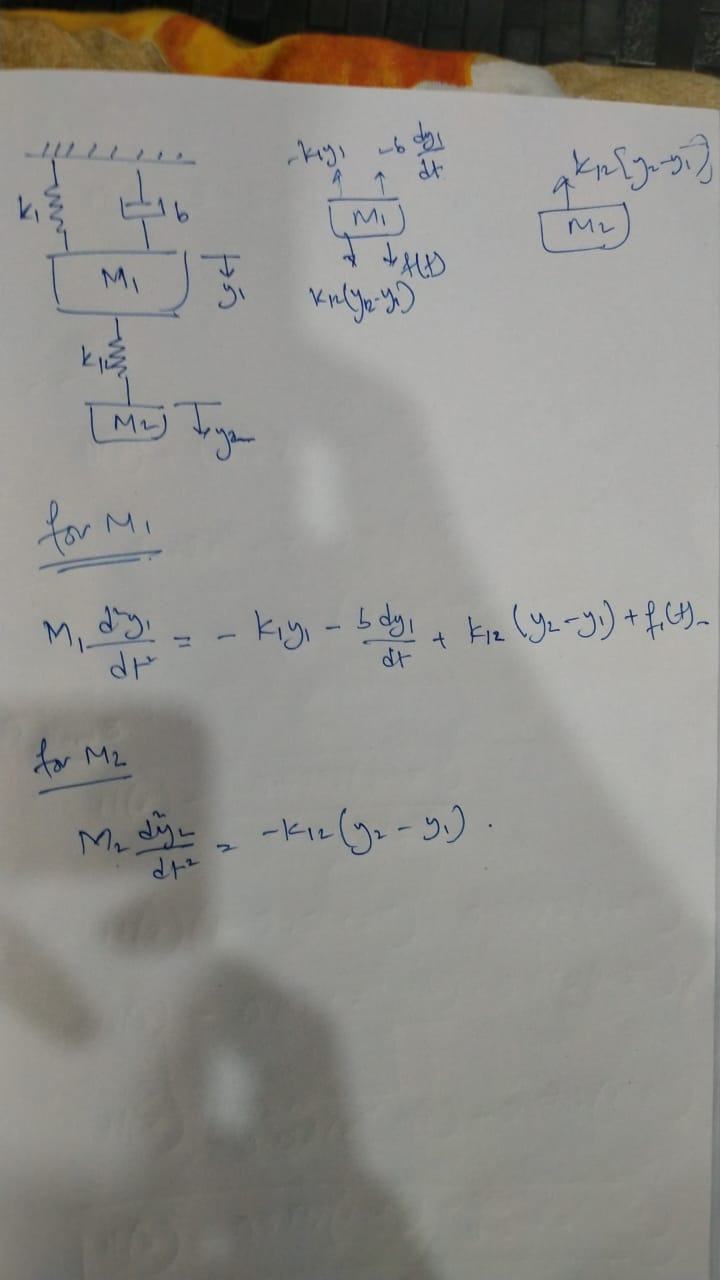 -k₁y₁ -b dy₁/dt
k₁₂{y₂-y₁}
k₁ b
M₁
M₂
M₁
y₁
f(t)
k₁₂(y₂-y₁)
k₁₂
M₂
y₂
for M₁
M₁ d²y₁/dt² = - k₁y₁ - b dy₁/dt + k₁₂ (y₂-y₁) + f₁(t)
for M₂
M₂ d²y₂/dt² = -k₁₂(y₂-y₁).